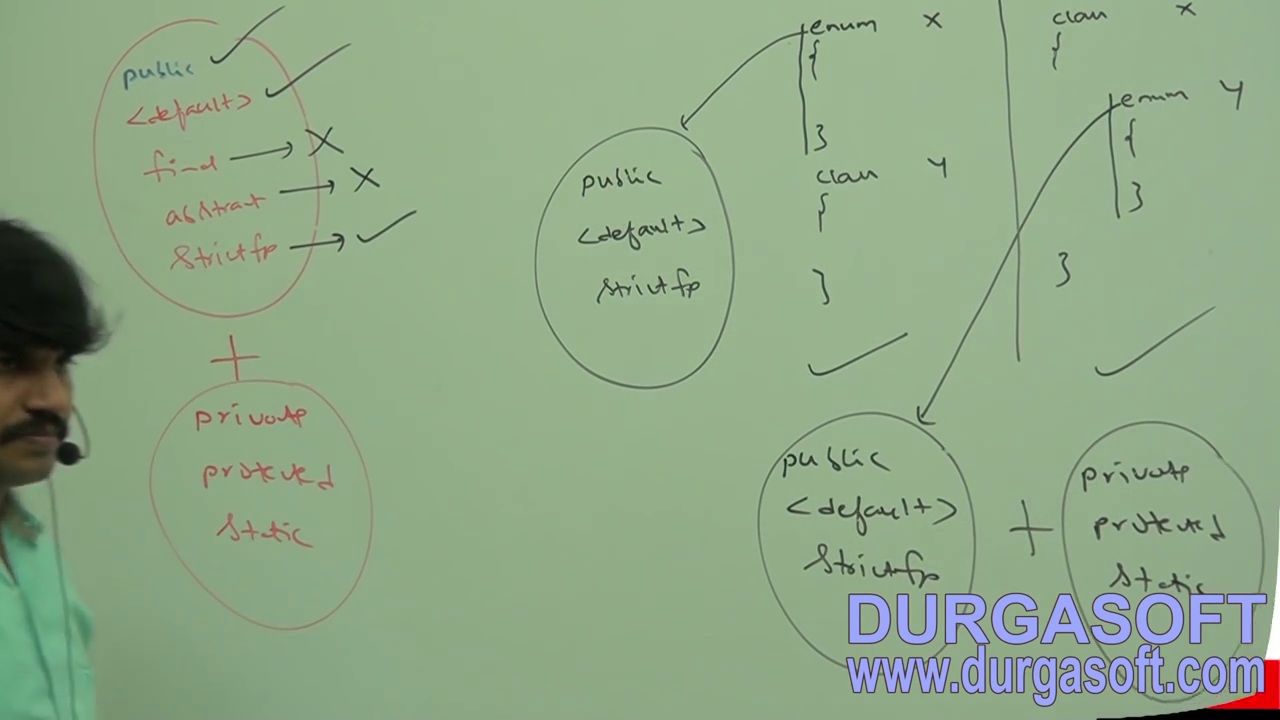 public
<default>
final
abstract
strictfp
+
private
protected
static
enum X
{
}
class Y
{
}
public
<default>
strictfp
class X
{
enum Y
{
}
}
public
<default>
strictfp
+
private
protected
static
DURGASOFT
www.durgasoft.com